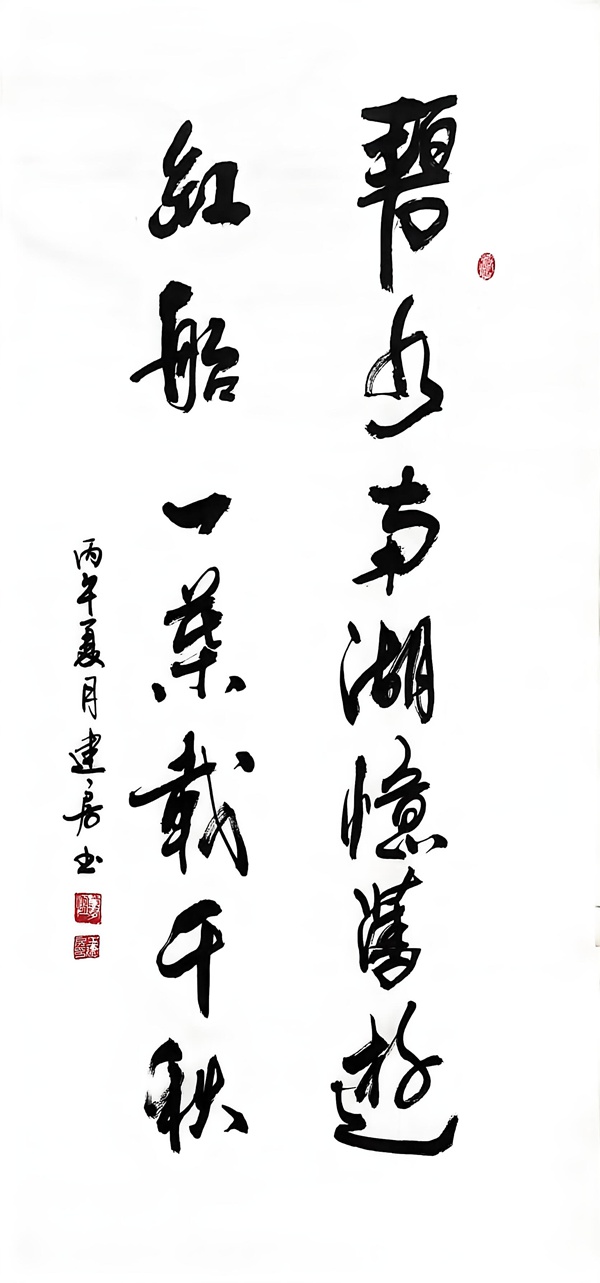 碧水南湖憶舊遊
紅船一葉載千秋
丙午夏月建房书